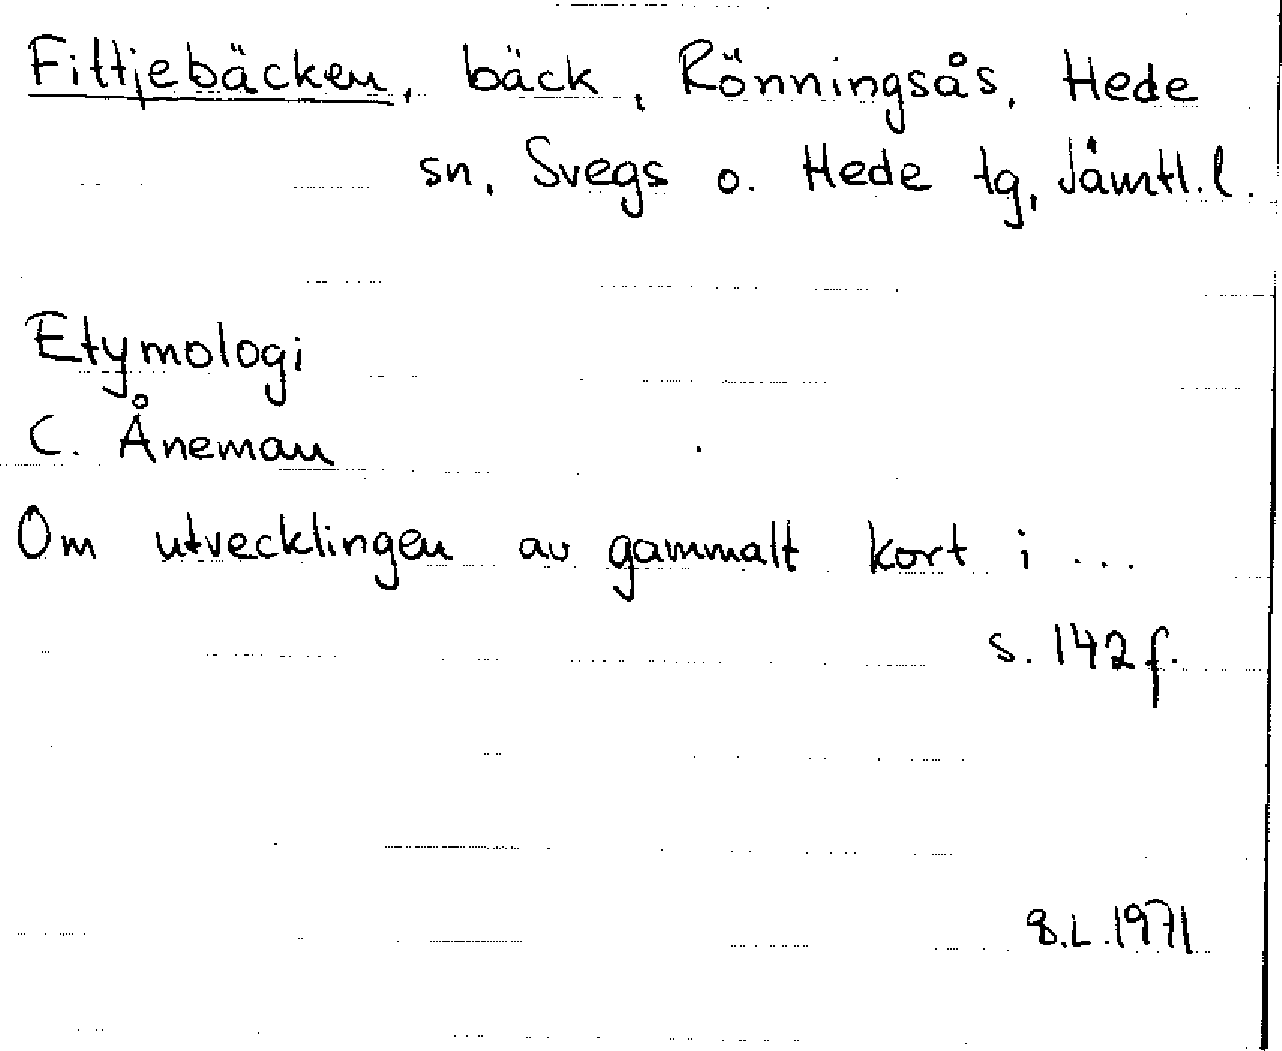 Fittjebäcken, bäck, Rönningsås, Hede
sn, Svegs o. Hede tg, Jämtl. l.
Etymologi
C. Åneman
Om utvecklingen av gammalt kort i ...
s. 142 f.
1971